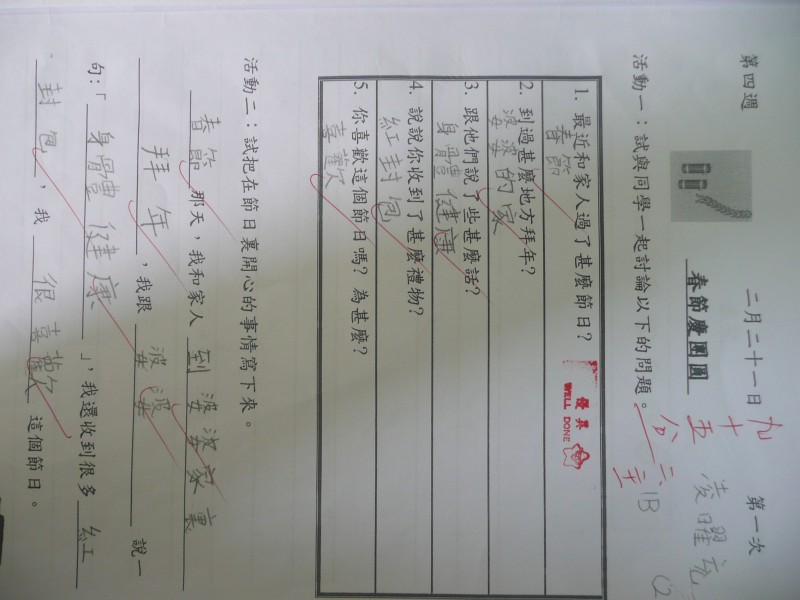 第四週 二月二十一日 第一次
九十五分
凌曜
1B
春節慶團圓
活動一：試與同學一起討論以下的問題。
優異
WELL DONE
1. 最近和家人過了甚麼節日?
春節
2. 到過甚麼地方拜年?
婆婆的家
3. 跟他們說了些甚麼話?
身體健康
4. 說說你收到了甚麼禮物?
紅封包
5. 你喜歡這個節日嗎? 為甚麼?
喜歡
活動二：試把在節日裏開心的事情寫下來。
春節那天，我和家人到婆婆家裏
拜年，我跟婆婆說一
句:「身體健康」，我還收到很多紅
封包，我很喜歡這個節日。